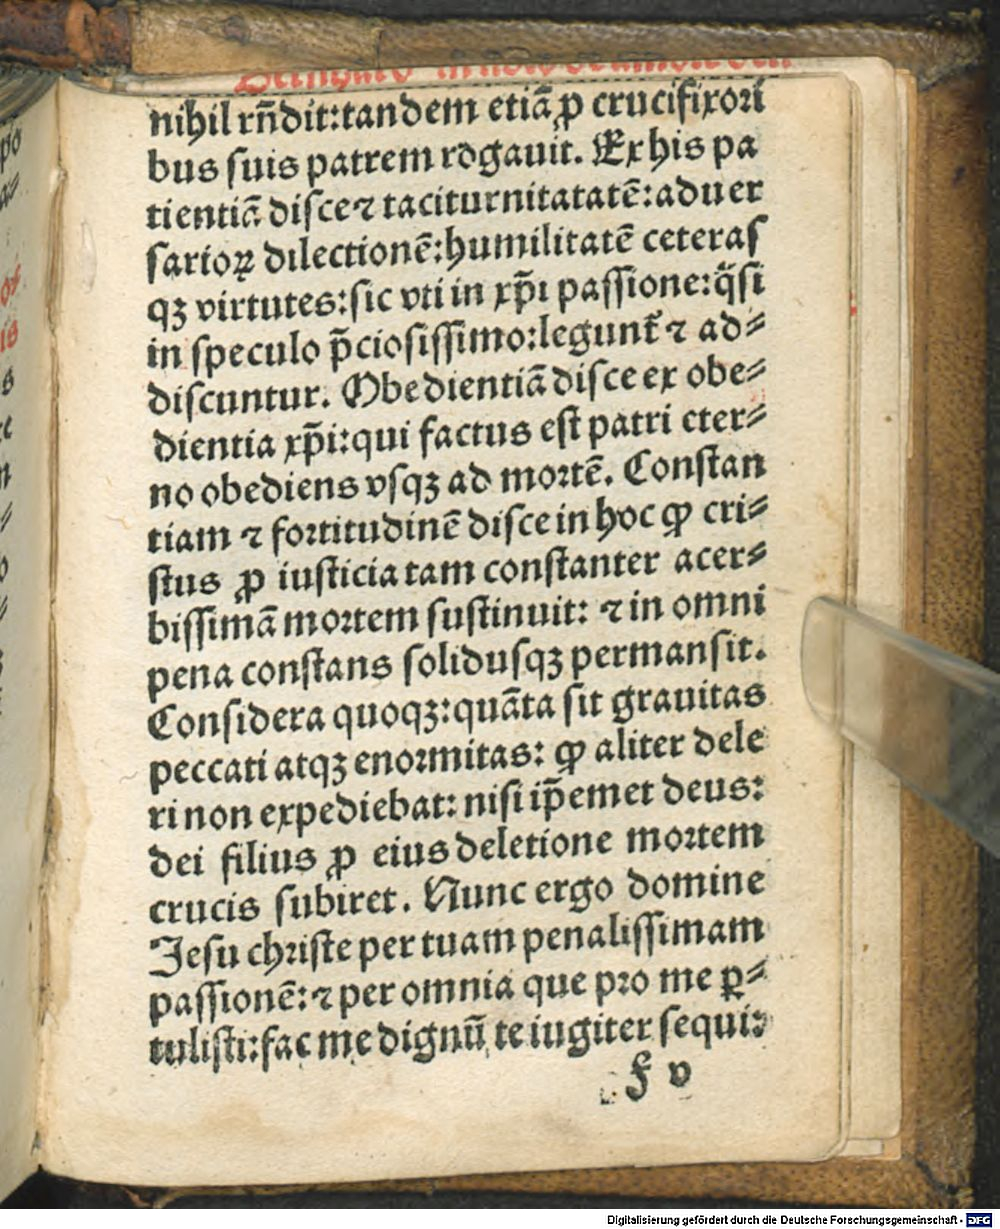 nihil rñdit:tandem etiã ꝓ crucifixori
bus suis patrem rogauit. Ex his pa
tientiã disce ⁊ taciturnitatatẽ:aduer
sarioꝝ dilectionẽ:humilitatẽ ceteras
qꝫ virtutes:sic vti in xp̃i passione:q̈si
in speculo p̃ciosissimo:legunt̃ ⁊ ad⸗
discuntur. Obedientiã disce ex obe⸗
dientia xp̃i:qui factus est patri eter⸗
no obediens vsqꝫ ad mortẽ. Constan
tiam ⁊ fortitudinẽ disce in hoc ꝙ cri⸗
stus ꝓ iusticia tam constanter acer⸗
bissimã mortem sustinuit: ⁊ in omni
pena constans solidusqꝫ permansit.
Considera quoqꝫ:quãta sit grauitas
peccati atqꝫ enormitas: ꝙ aliter dele
ri non expediebat: nisi ip̃emet deus:
dei filius ꝓ eius deletione mortem
crucis subiret. Nunc ergo domine
Jesu christe per tuam penalissimam
passionẽ: ⁊ per omnia que pro me ꝑ⸗
tulisti:fac me dignũ te iugiter sequi:
f v
Digitalisierung gefördert durch die Deutsche Forschungsgemeinschaft - DFG